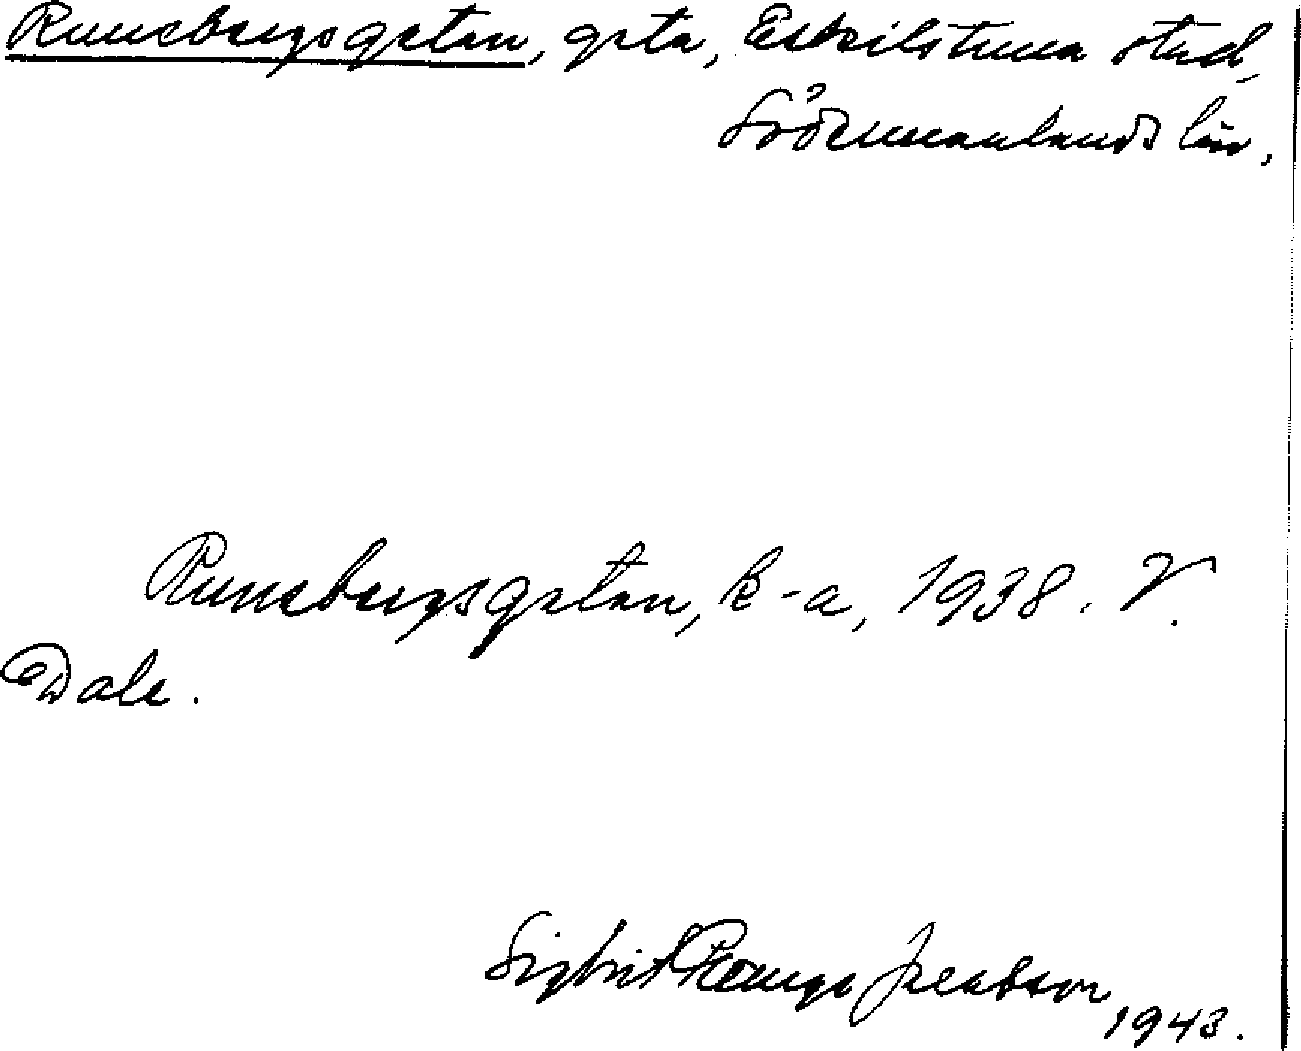 Runebergsgatan, gata, Eskilstuna stad,
Södermanlands län.
Runebergsgatan, k-a, 1938. V.
Dale.
Sigbrit Plænge Jacobson
1943.